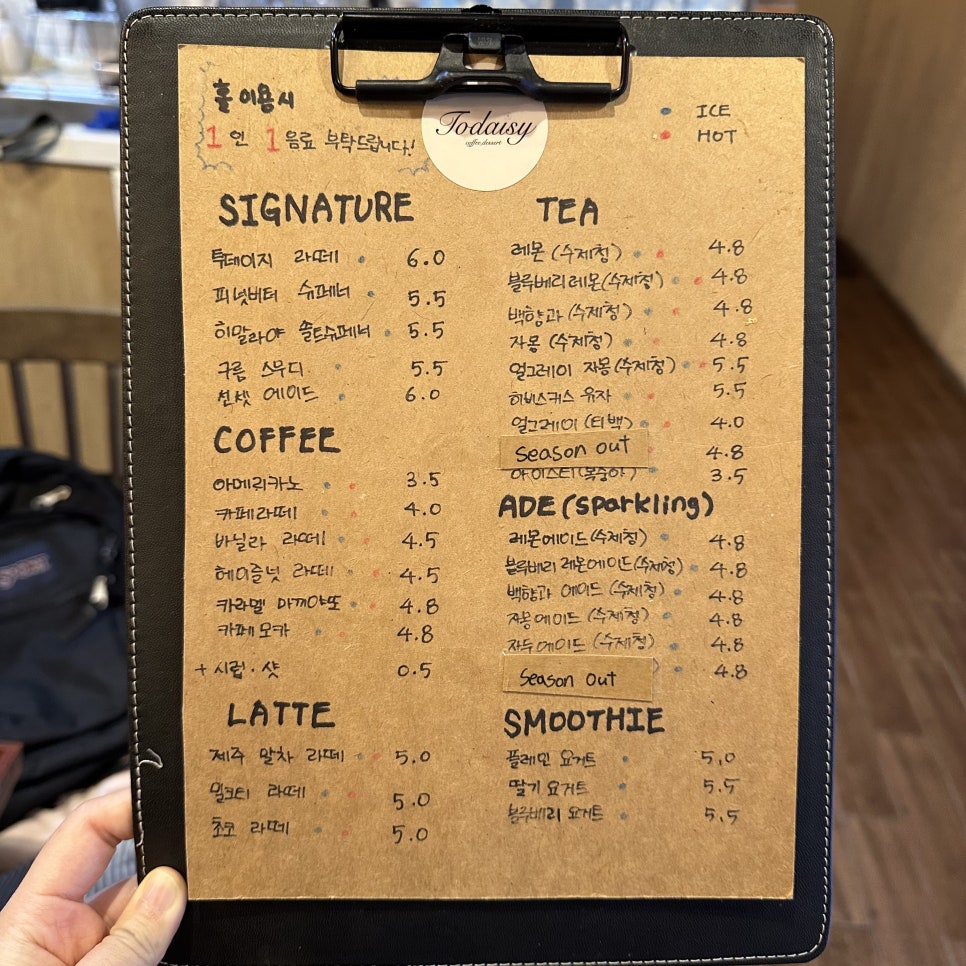 홀 이용시
1인 1음료 부탁드립니다!
Todaisy
coffee.dessert
ICE
HOT
SIGNATURE
투데이지 라떼 6.0
피넛버터 슈페너 5.5
히말라야 솔트슈페너 5.5
구름 스무디 5.5
썬셋 에이드 6.0
COFFEE
아메리카노 3.5
카페라떼 4.0
바닐라 라떼 4.5
헤이즐넛 라떼 4.5
카라멜 마끼야또 4.8
카페모카 4.8
+ 시럽·샷 0.5
LATTE
제주 말차 라떼 5.0
밀크티 라떼 5.0
초코 라떼 5.0
TEA
레몬 (수제청) 4.8
블루베리레몬(수제청) 4.8
백향과 (수제청) 4.8
자몽 (수제청) 4.8
얼그레이 자몽(수제청) 5.5
히비스커스 유자 5.5
얼그레이 (티백) 4.0
Season out 4.8
아이스티(복숭아) 3.5
ADE (Sparkling)
레몬에이드(수제청) 4.8
블루베리 레몬에이드(수제청) 4.8
백향과 에이드 (수제청) 4.8
자몽에이드 (수제청) 4.8
자두에이드 (수제청) 4.8
Season out ) 4.8
SMOOTHIE
플레인 요거트 5.0
딸기 요거트 5.5
블루베리 요거트 5.5